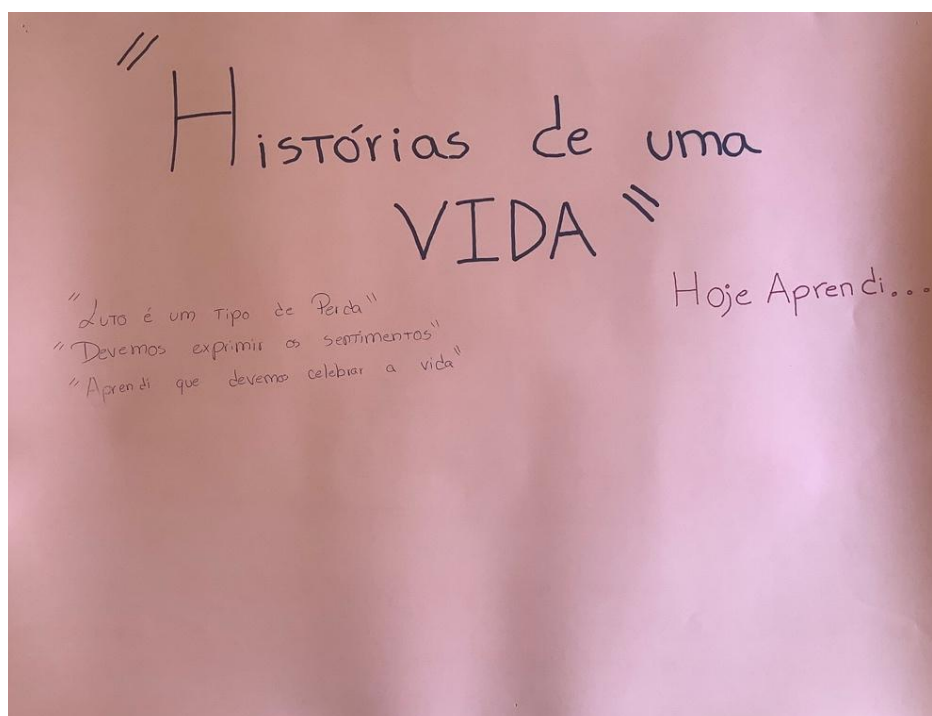 "Histórias de uma
VIDA"
Hoje Aprendi...
"Luto é um Tipo de Perda"
"Devemos exprimir os sentimentos"
"Aprendi que devemos celebrar a vida"